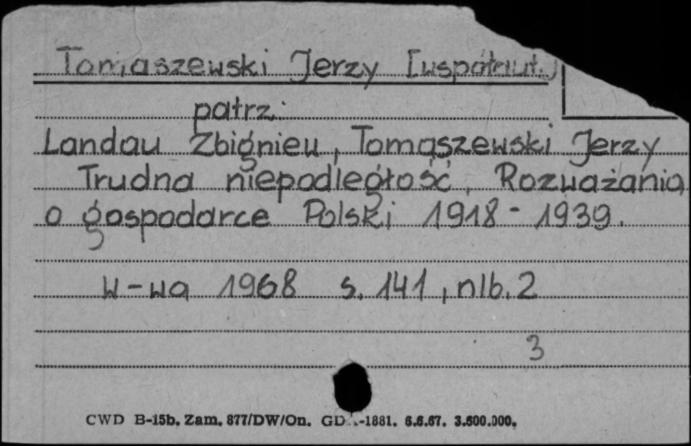 Tomaszewski Jerzy [współaut.]
patrz:
Landau Zbigniew, Tomaszewski Jerzy
Trudna niepodległość, Rozważania
o gospodarce Polski 1918 - 1939.
W-wa 1968 s. 141, nlb. 2
3
CWD B-15b. Zam. 877/DW/On. -1881. 6.6.67. 3.600.000.